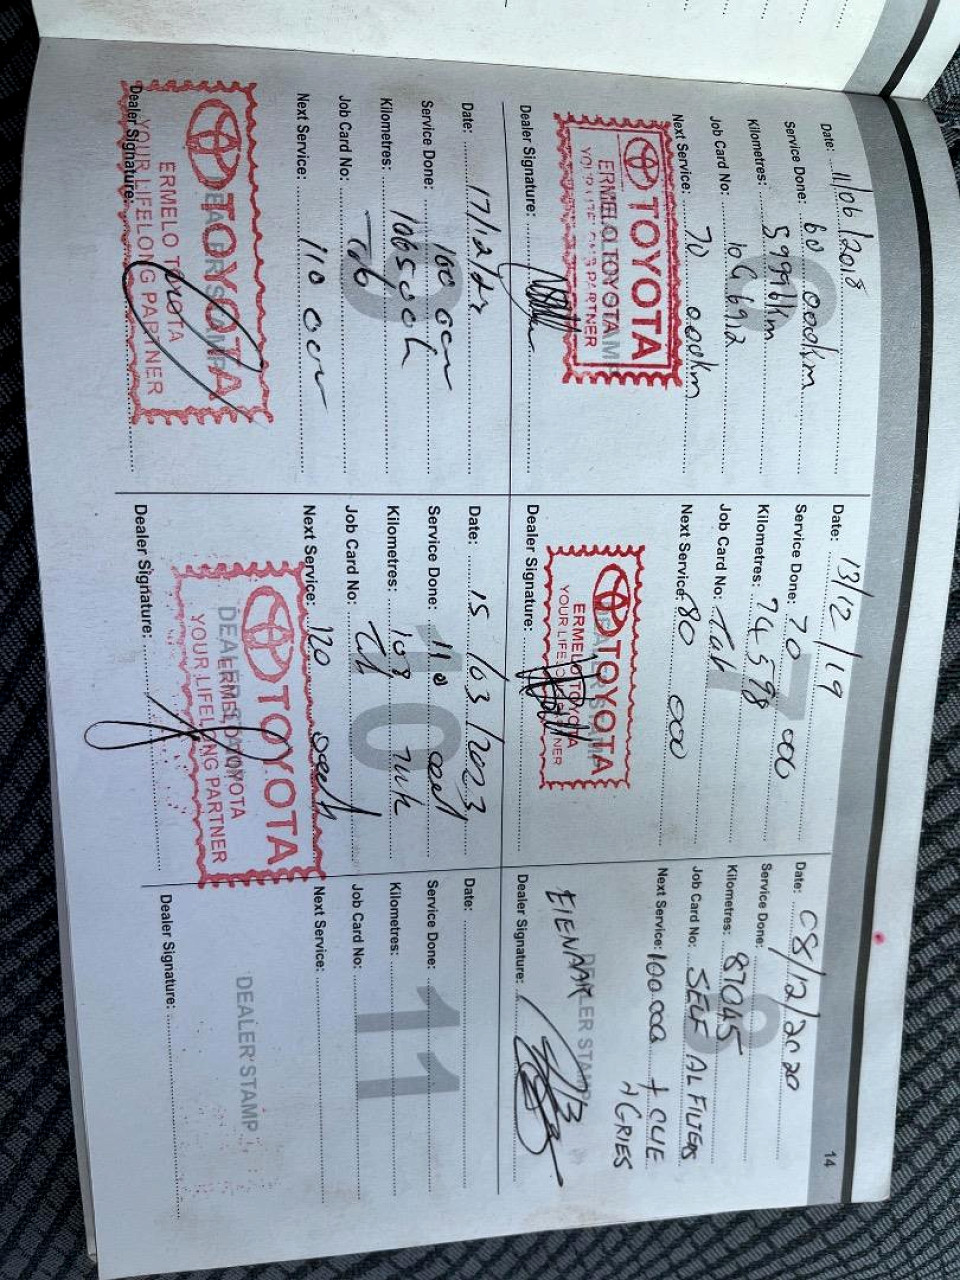 14
Date: 11/06/2018
Service Done: 60 000km
Kilometres: 59996km
Job Card No: 106 6912
Next Service: 70 000km
DEALER STAMP
TOYOTA
ERMELO TOYOTA
YOUR LIFELONG PARTNER
Dealer Signature:
6
Date: 13/12/19
Service Done: 70 000
Kilometres: 74598
Job Card No: Tab
Next Service: 80 000
DEALER STAMP
TOYOTA
ERMELO TOYOTA
YOUR LIFELONG PARTNER
Dealer Signature:
7
Date: 08/12/2020
Service Done:
Kilometres: 87045
Job Card No: SELF AL FILTERS
Next Service: 100 000 + OLIE
+ GRIES
EIENAAR
DEALER STAMP
Dealer Signature:
8
Date: 17/12/22
Service Done: 100 000
Kilometres: 106500k
Job Card No: Tab
Next Service: 110 000
DEALER STAMP
TOYOTA
ERMELO TOYOTA
YOUR LIFELONG PARTNER
Dealer Signature:
9
Date: 15/03/2023
Service Done: 110
Kilometres: 108
Job Card No: Tab
Next Service: 120
DEALER STAMP
TOYOTA
ERMELO TOYOTA
YOUR LIFELONG PARTNER
Dealer Signature:
10
Date:
Service Done:
Kilometres:
Job Card No:
Next Service:
DEALER STAMP
Dealer Signature:
11